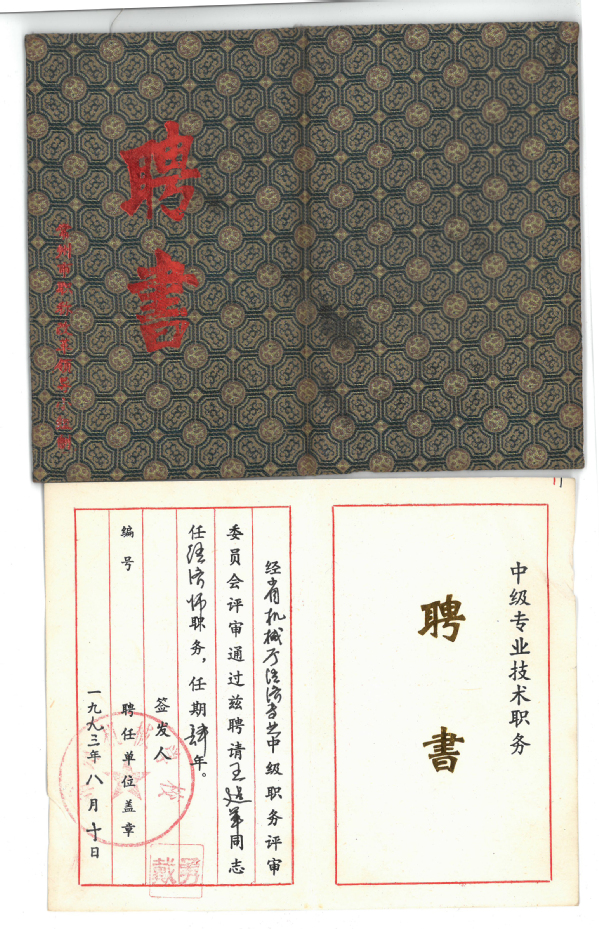 聘书
常州市
中级专业技术职务
聘书
经省机械厅经济专业中级职务评审
委员会评审通过兹聘请王建军同志
任经济师职务，任期肆年。
签发人
聘任单位盖章
编号
一九九三年八月十日